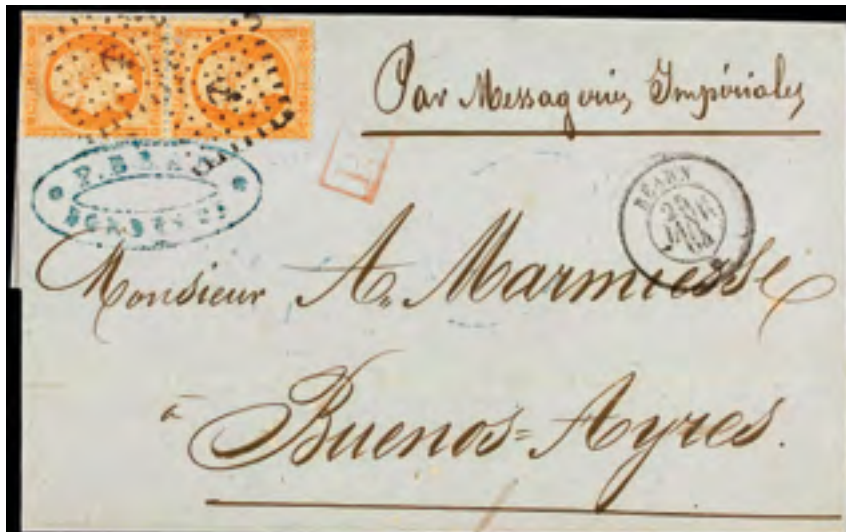 Par Messageries Impériales
BÉARN
25
JANV
Monsieur A. Marmiesse
à
Buenos=Ayres.